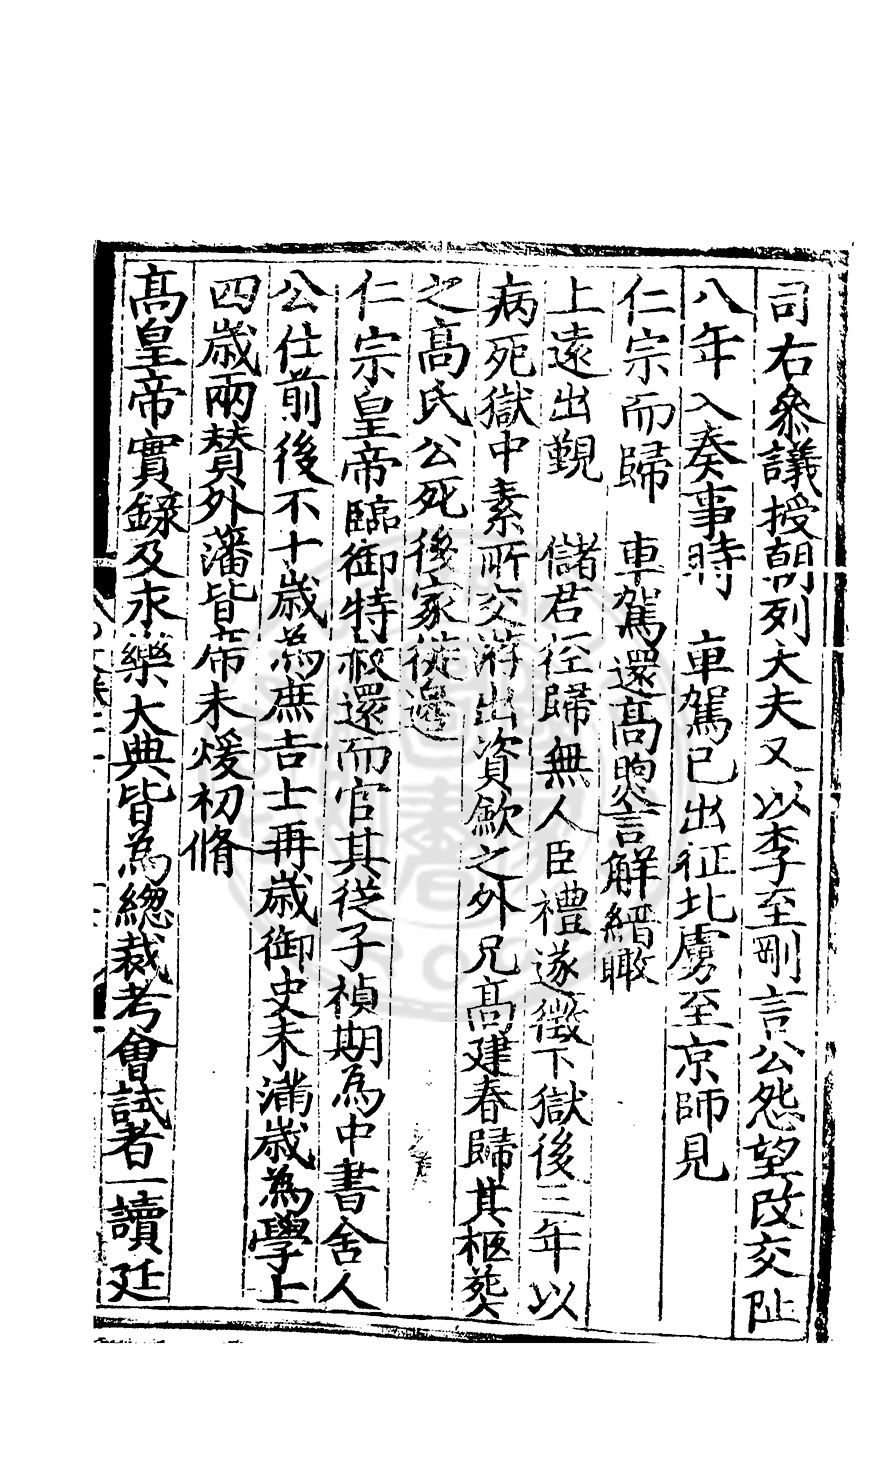 司右參議授朝列大夫又以李至剛言公怨望改交阯
八年入奏事時　車駕已出征北虜至京師見
仁宗而歸　車駕還高煦言解縉瞰
上遠出覲　儲君徑歸無人臣禮遂徵下獄後三年以
病死獄中素所交游出資歛之外兄高建春歸其柩葬
之高氏公死後家從邊
仁宗皇帝臨御特赦還而官其從子禎期為中書舍人
公仕前後不十歲為庶吉士再歲御史未滿歲為學士
四歲兩贊外藩皆席未煖初脩
高皇帝實錄及永樂大典皆為總裁考會試者一讀廷